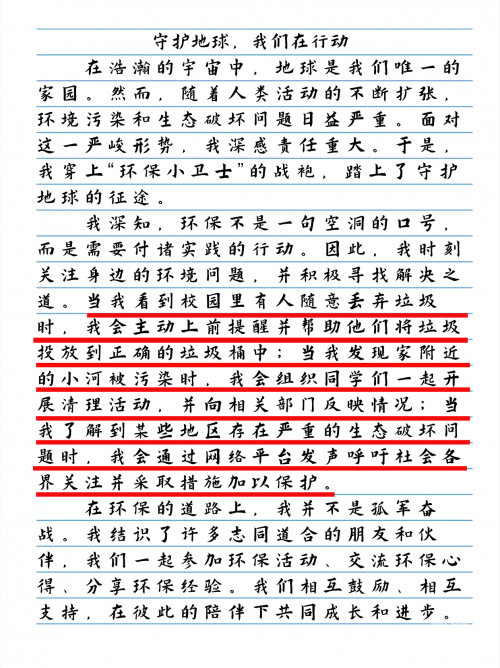 守护地球，我们在行动
在浩瀚的宇宙中，地球是我们唯一的
家园。然而，随着人类活动的不断扩张，
环境污染和生态破坏问题日益严重。面对
这一严峻形势，我深感责任重大。于是，
我穿上“环保小卫士”的战袍，踏上了守护
地球的征途。
我深知，环保不是一句空洞的口号，
而是需要付诸实践的行动。因此，我时刻
关注身边的环境问题，并积极寻找解决之
道。当我看到校园里有人随意丢弃垃圾
时，我会主动上前提醒并帮助他们将垃圾
投放到正确的垃圾桶中；当我发现家附近
的小河被污染时，我会组织同学们一起开
展清理活动，并向相关部门反映情况；当
我了解到某些地区存在严重的生态破坏问
题时，我会通过网络平台发声呼吁社会各
界关注并采取措施加以保护。
在环保的道路上，我并不是孤军奋
战。我结识了许多志同道合的朋友和伙
伴，我们一起参加环保活动、交流环保心
得、分享环保经验。我们相互鼓励、相互
支持，在彼此的陪伴下共同成长和进步。